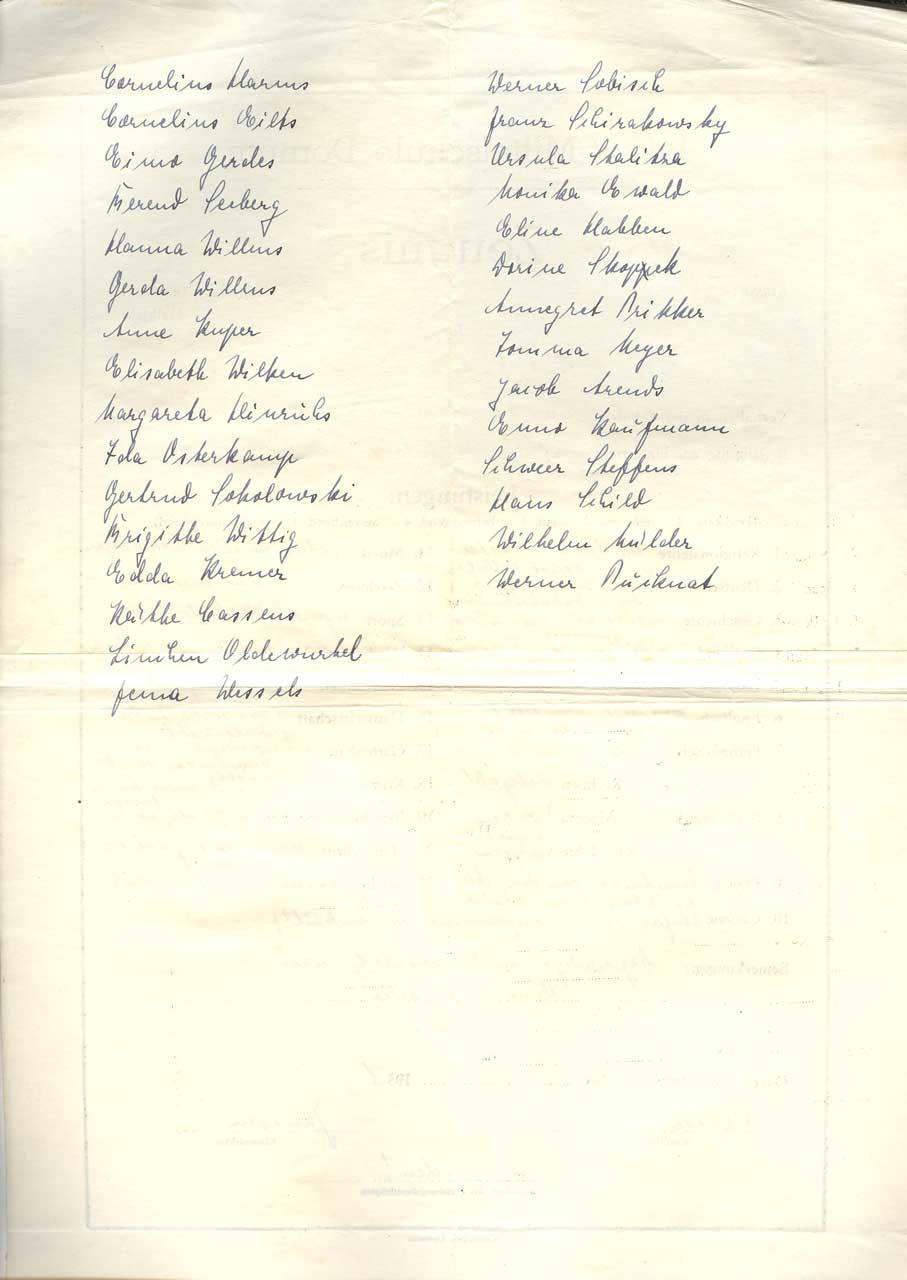 Cornelius Harms
Cornelius Eilts
Eimo Gerdes
Berend Seeberg
Hanna Willms
Gerda Willms
Anne Kuper
Elisabeth Wilken
Margareta Hinrichs
Ida Osterkamp
Gertrud Sokolowski
Brigitte Wittig
Edda Kremer
Käthe Cassens
Limken Oldewurtel
Jenna Wessels
Werner Sobisch
Franz Schirakowsky
Ursula Skalitza
Monika Ewald
Eline Habben
Dorine Skoppek
Annegret Brikker
Tomma Meyer
Jacob Arends
Enno Kaufmann
Schweer Steffens
Hans Schild
Wilhelm Mülder
Werner Buiknat